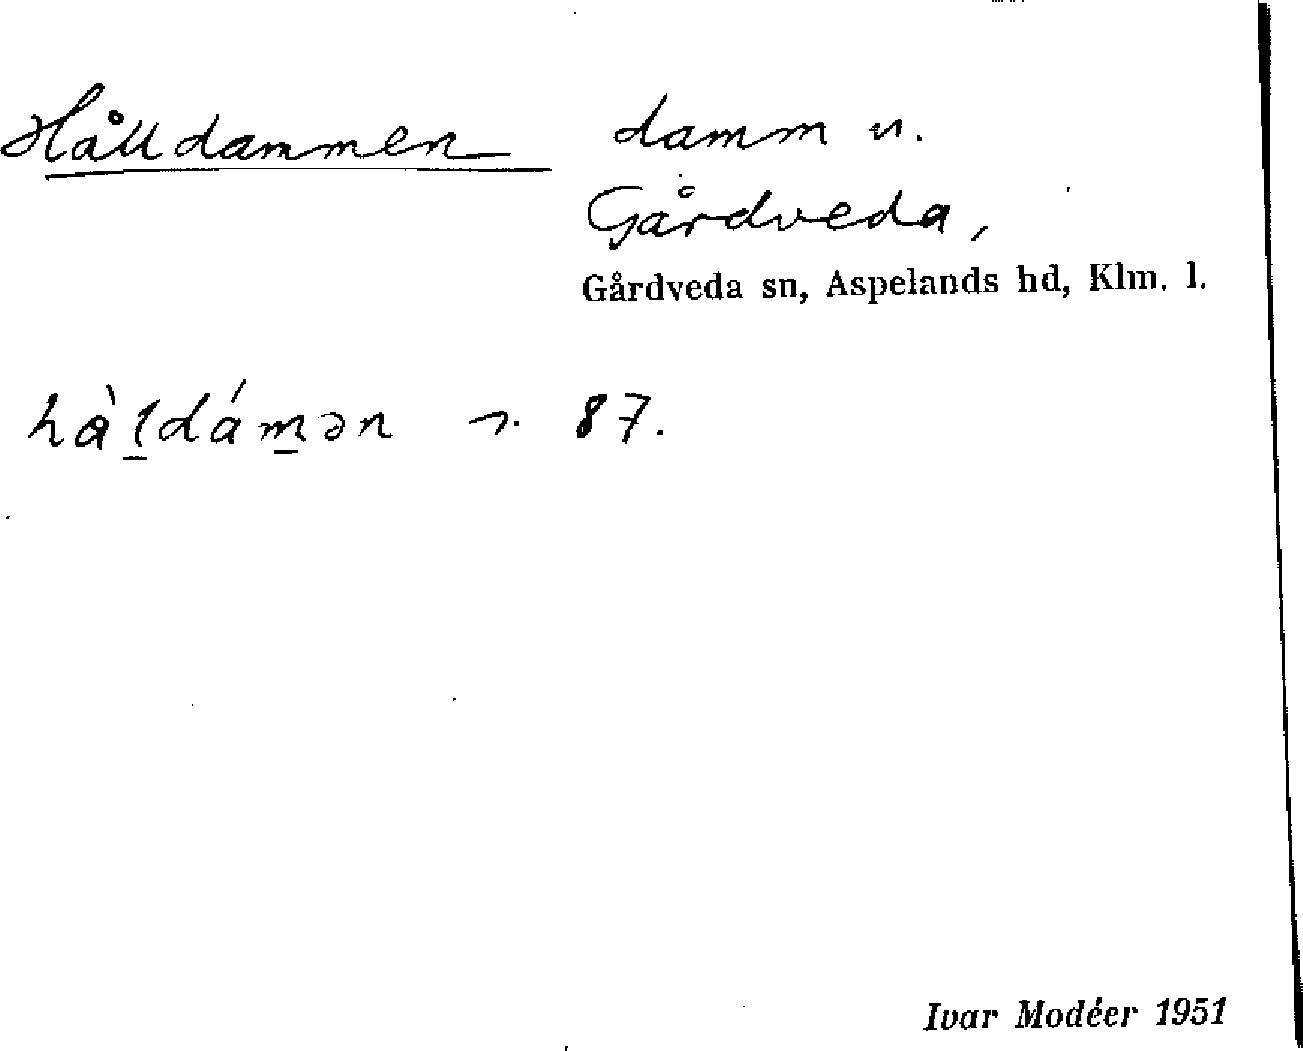 Hålldammen damm n.
Gårdveda,
Gårdveda sn, Aspelands hd, Klm. l.
hå̀ldámən s. 87.
Ivar Modéer 1951